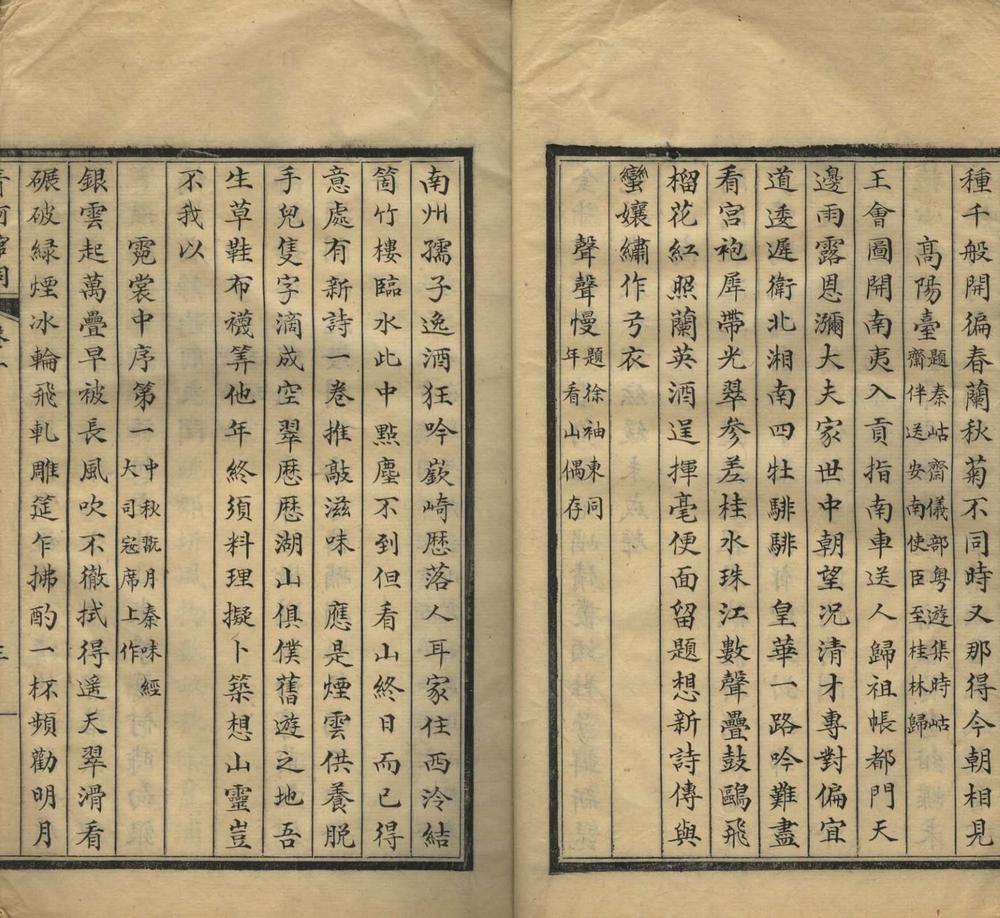 種千般開徧春蘭秋菊不同時又那得今朝相見
高陽臺題秦岵齋儀部粵遊集時岵齋伴送安南使臣至桂林歸
王會圖開南夷入貢指南車送人歸祖帳都門天
邊雨露恩瀰大夫家世中朝望况清才專對偏宜
道逶遲衛北湘南四牡騑騑 皇華一路吟難盡
看宮袍犀帶光翠參差桂水珠江數聲疊鼓鷗飛
榴花紅照蘭英酒逞揮毫便面留題想新詩傳與
蠻孃繡作弓衣
聲聲慢題徐袖東同年看山偶存
南州孺子逸酒狂吟嶔崎歷落人耳家住西泠結
箇竹樓臨水此中點塵不到但看山終日而已得
意處有新詩一卷推敲滋味 應是煙雲供養脫
手兒隻字滴成空翠歷歷湖山俱僕舊遊之地吾
生草鞋布襪筭他年終須料理擬卜築想山靈豈
不我以
霓裳中序第一中秋翫月秦味經大司寇席上作
銀雲起萬疊早被長風吹不徹拭得遙天翠滑看
碾破綠煙冰輪飛軋雕筵乍拂酌一杯頻勸明月